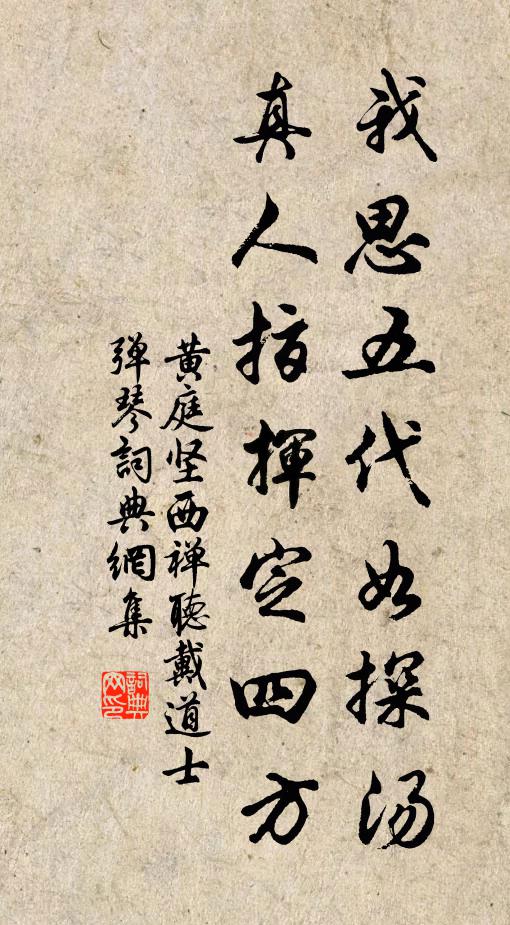 我思五代如探汤
真人指挥定四方
黄庭坚西禅聽戴道士
弹琴詞典網集
詞典
网印